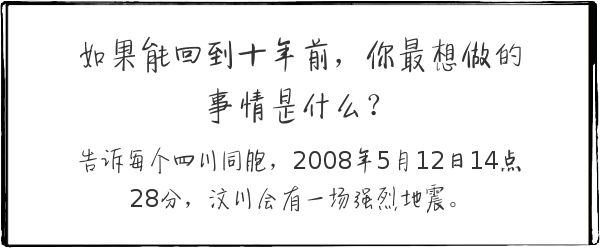 如果能回到十年前，你最想做的
事情是什么？
告诉每个四川同胞，2008年5月12日14点
28分，汶川会有一场强烈地震。